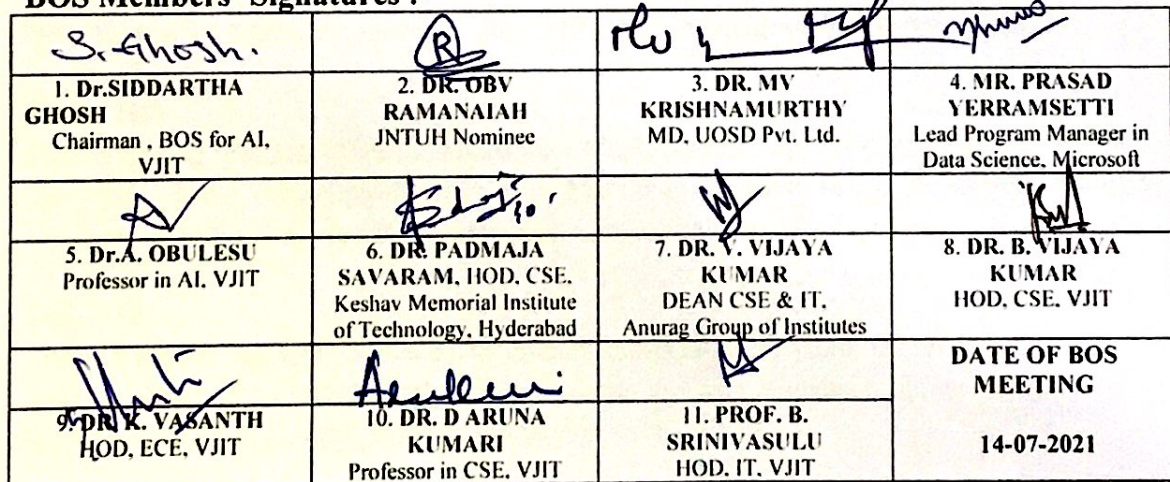 BOS Members' Signatures :
S. Ghosh.
1. Dr.SIDDARTHA
GHOSH
Chairman , BOS for AI,
VJIT
2. DR. OBV
RAMANAIAH
JNTUH Nominee
3. DR. MV
KRISHNAMURTHY
MD, UOSD Pvt. Ltd.
4. MR. PRASAD
YERRAMSETTI
Lead Program Manager in
Data Science, Microsoft
5. Dr.A. OBULESU
Professor in AI, VJIT
6. DR. PADMAJA
SAVARAM, HOD, CSE.
Keshav Memorial Institute
of Technology, Hyderabad
7. DR. V. VIJAYA
KUMAR
DEAN CSE & IT.
Anurag Group of Institutes
8. DR. B. VIJAYA
KUMAR
HOD, CSE, VJIT
9. DR. K. VASANTH
HOD, ECE, VJIT
10. DR. D ARUNA
KUMARI
Professor in CSE, VJIT
11. PROF. B.
SRINIVASULU
HOD, IT, VJIT
DATE OF BOS
MEETING
14-07-2021